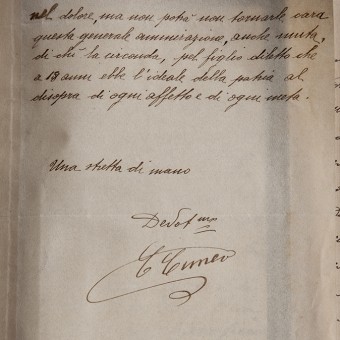 nel dolore, ma non potrà non tornarle cara
questa generale ammirazione, anche muta,
di chi la circonda, pel figlio diletto che
a 18 anni ebbe l'ideale della patria al
disopra di ogni affetto e di ogni meta.
Una stretta di mano
Devot mo